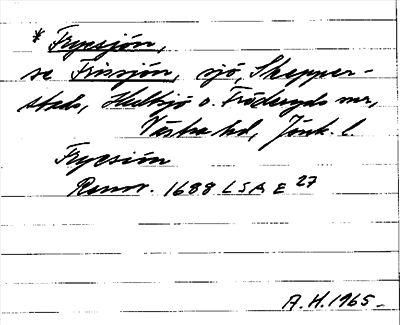 * Frycsjön,
se Frissjön, sjö, Skepper-
stads, Hultsjö o. Fröderyds snr,
Västra hd, Jönk. l.
Frycsiön
Rannr. 1688 LSA E 27
A.H. 1965